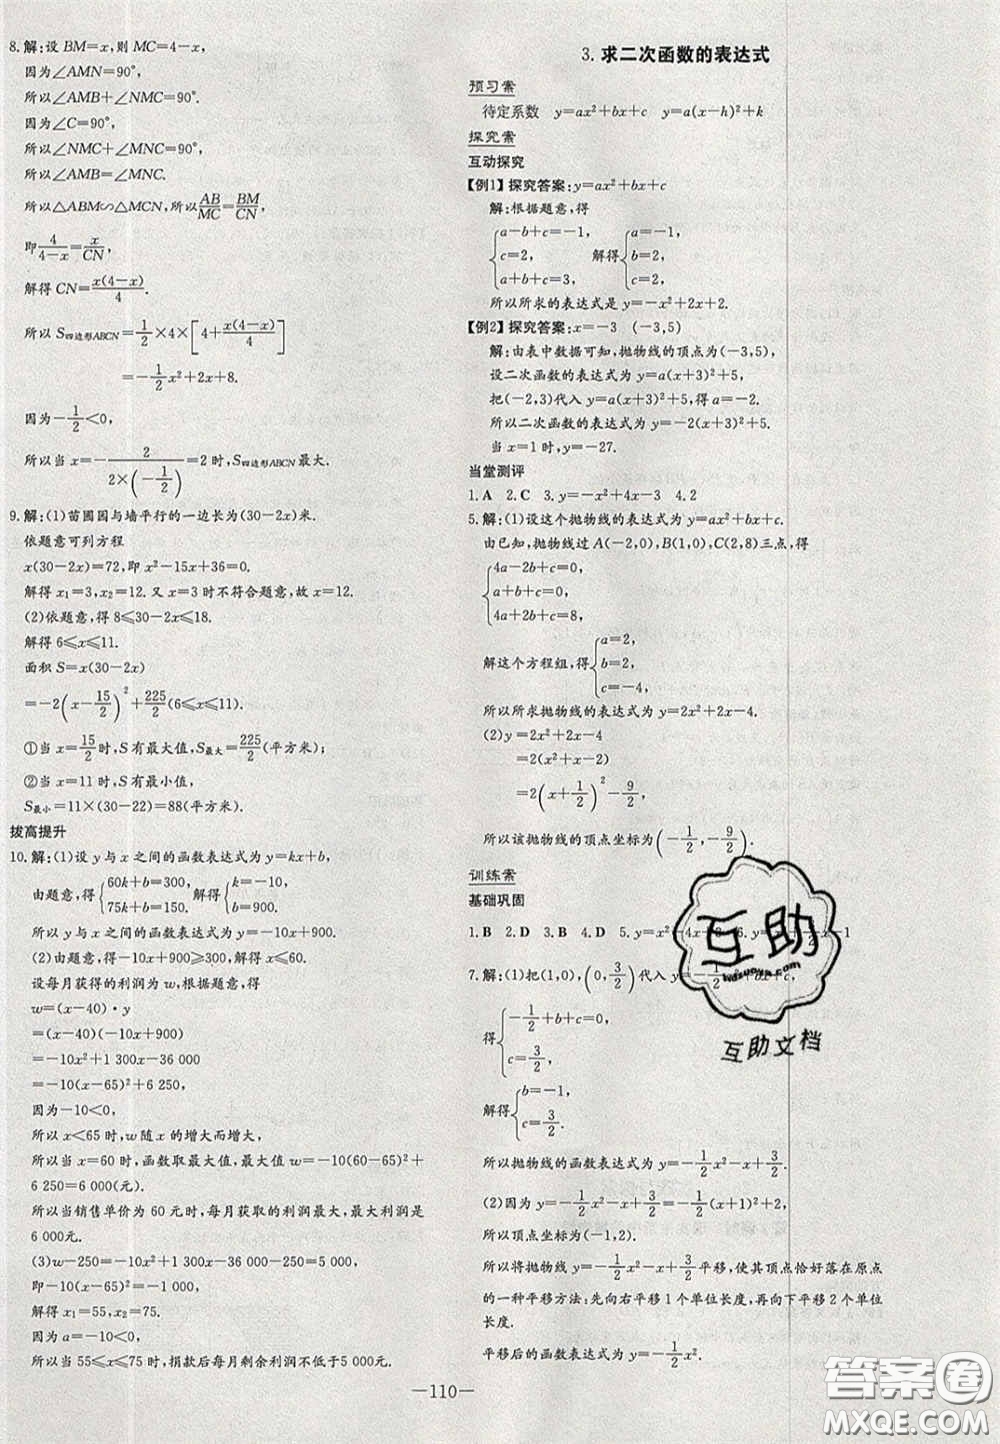 8.解:设 BM=x,则 MC=4-x,
因为∠AMN=90°,
所以∠AMB+∠NMC=90°,
因为∠C=90°,
所以∠NMC+∠MNC=90°,
所以∠AMB=∠MNC.
所以△ABM∽△MCN,所以AB/MC=BM/CN,
即4/(4-x)=x/CN,
解得 CN=x(4-x)/4.
所以 S四边形ABCN=1/2×4×[4+x(4-x)/4]
=-1/2x²+2x+8.
因为-1/2<0,
所以当 x=-2/(2×(-1/2))=2时,S四边形ABCN最大.
9.解:(1)苗圃园与墙平行的一边长为(30-2x)米.
依题意可列方程
x(30-2x)=72,即 x²-15x+36=0.
解得 x₁=3,x₂=12.又 x=3 时不符合题意,故 x=12.
(2)依题意,得 8≤30-2x≤18.
解得 6≤x≤11.
面积 S=x(30-2x)
=-2(x-15/2)²+225/2(6≤x≤11).
①当 x=15/2时,S有最大值,S最大=225/2(平方米);
②当 x=11时,S有最小值,
S最小=11×(30-22)=88(平方米).
拔高提升
10.解:(1)设 y 与 x 之间的函数表达式为 y=kx+b,
由题意,得{60k+b=300, 75k+b=150.解得{k=-10, b=900.
所以 y 与 x 之间的函数表达式为 y=-10x+900.
(2)由题意,得-10x+900≥300,解得 x≤60.
设每月获得的利润为 w,根据题意,得
w=(x-40)·y
=(x-40)(-10x+900)
=-10x²+1 300x-36 000
=-10(x-65)²+6 250,
因为-10<0,
所以 x<65 时,w 随 x 的增大而增大,
所以当 x=60 时,函数取最大值,最大值 w=-10(60-65)²+
6 250=6 000(元).
所以当销售单价为 60 元时,每月获取的利润最大,最大利润是
6 000元.
(3)w-250=-10x²+1 300x-36 000-250=5 000,
即-10(x-65)²=-1 000,
解得 x₁=55,x₂=75.
因为 a=-10<0,
所以当 55≤x≤75 时,捐款后每月剩余利润不低于5 000元.
3.求二次函数的表达式
预习案
待定系数 y=ax²+bx+c y=a(x-h)²+k
探究案
互动探究
【例1】探究答案:y=ax²+bx+c
解:根据题意,得
{a-b+c=-1, c=2, a+b+c=3, 解得{a=-1, b=2, c=2,
所以所求的表达式是 y=-x²+2x+2.
【例2】探究答案:x=-3 (-3,5)
解:由表中数据可知,抛物线的顶点为(-3,5),
设二次函数的表达式为 y=a(x+3)²+5,
把(-2,3)代入 y=a(x+3)²+5,得 a=-2.
所以二次函数的表达式为 y=-2(x+3)²+5.
当 x=1时,y=-27.
当堂测评
1.A 2.C 3.y=-x²+4x-3 4.2
5.解:(1)设这个抛物线的表达式为 y=ax²+bx+c.
由已知,抛物线过 A(-2,0),B(1,0),C(2,8)三点,得
{4a-2b+c=0, a+b+c=0, 4a+2b+c=8,
解这个方程组,得{a=2, b=2, c=-4,
所以所求抛物线的表达式为 y=2x²+2x-4.
(2)y=2x²+2x-4
=2(x²+x-2)
=2(x+1/2)²-9/2,
所以该抛物线的顶点坐标为(-1/2,-9/2).
训练案
基础巩固
1.B 2.D 3.B 4.D 5.y=x²-4x+3 6.
7.解:(1)把(1,0),(0,3/2)代入 y=-1/2x²+bx+c,
得{-1/2+b+c=0, c=3/2.
解得{b=-1, c=3/2.
所以抛物线的函数表达式为 y=-1/2x²-x+3/2.
(2)因为 y=-1/2x²-x+3/2=-1/2(x+1)²+2,
所以顶点坐标为(-1,2).
所以将抛物线 y=-1/2x²-x+3/2平移,使其顶点恰好落在原点
的一种平移方法:先向右平移1个单位长度,再向下平移2个单位长度,
平移后的函数表达式为 y=-1/2x².
—110—
互助
互助文档
答案圈
MXQE.COM